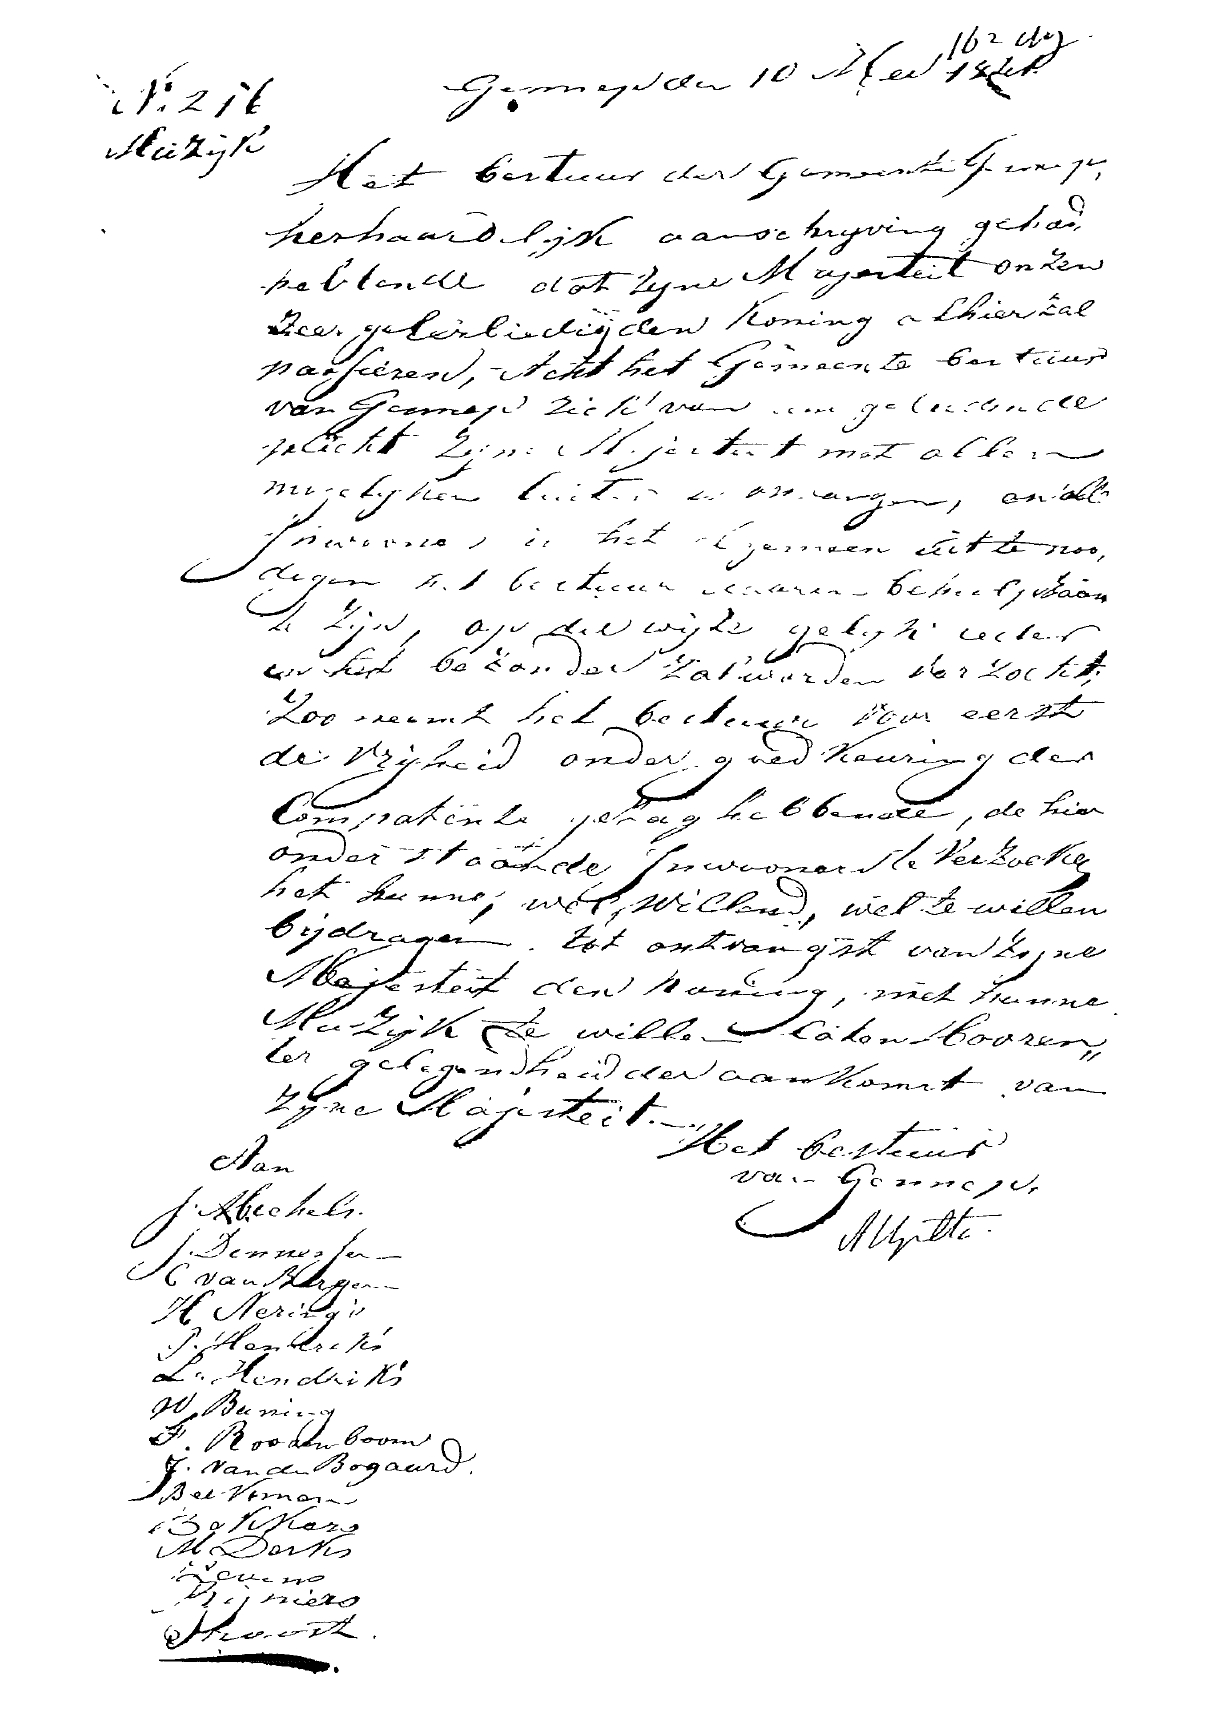 No. 216
Muzijk
Gennep den 10 Mei
Het bestuur der Gemeente Gennep,
herhaardlijk aanschryving gehad
hebbende dat Zyne Majesteit onzen
Zeer geliefden Koning alhier zal
passieren, Acht het Gemeente bestuur
van Gennep zich van
plicht Zijne Majesteit met allen
mogelyken luister te ontvangen, en alle
Inwooners in het algemeen uit te noo,
digen het bestuur behulpzaam
te Zijn, op die wijze gelyk ieder
in het bezonder zal worden verzocht,
Zoo neemt het bestuur voor eerst
de Vrijheid onder goedkeuring der
Compatente gezaghebbende, de hier
onderstaande Inwooners te Verzoeken
het hunne, wel te willen
bijdragen tot ontvangst van Zyne
Majesteit den Koning, met hunne
Muzijk te willen laten hooren,,
ter gelegendheid der aankomst van
Zyne Majesteit.
Het bestuur
van Gennep.
Aan
J. Michels.
J. Dennessen
C van Bergen
H Nerings
P. Hendriks
L. Hendriks
W. Buning
F. Roosenboom
J. van den Bogaard.
Beekmans
Bakkers
M. Derks
Reiniers